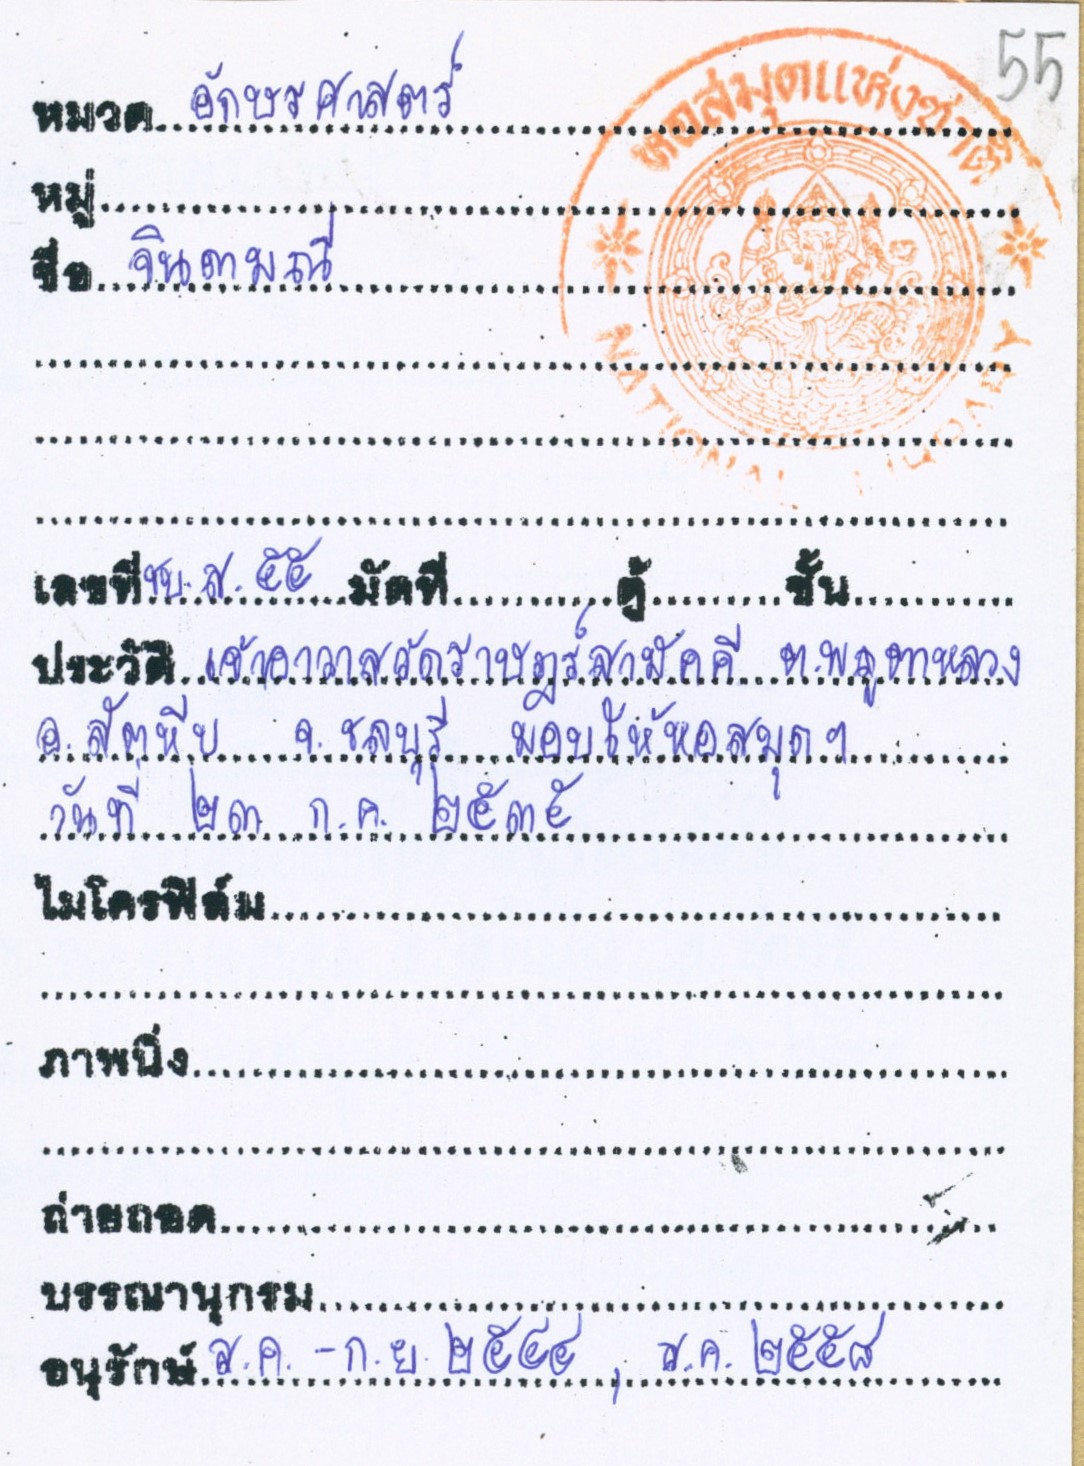 55
หอสมุดแห่งชาติ
NATIONAL LIBRARY
หมวด อักษรศาสตร์
หมู่
ชื่อ จินดามณี
เลขที่ ชบ.ส. ๕๕ มัดที่ ตู้ ชั้น
ประวัติ เจ้าอาวาสวัดราษฎร์สามัคคี ต.พลูตาหลวง
อ.สัตหีบ จ.ชลบุรี มอบให้หอสมุดฯ
วันที่ ๒๓ ก.ค. ๒๕๓๕
ไมโครฟิล์ม
ภาพนิ่ง
ถ่ายถอด
บรรณานุกรม
อนุรักษ์ ส.ค. - ก.ย. ๒๕๔๔ , ส.ค. ๒๕๕๘